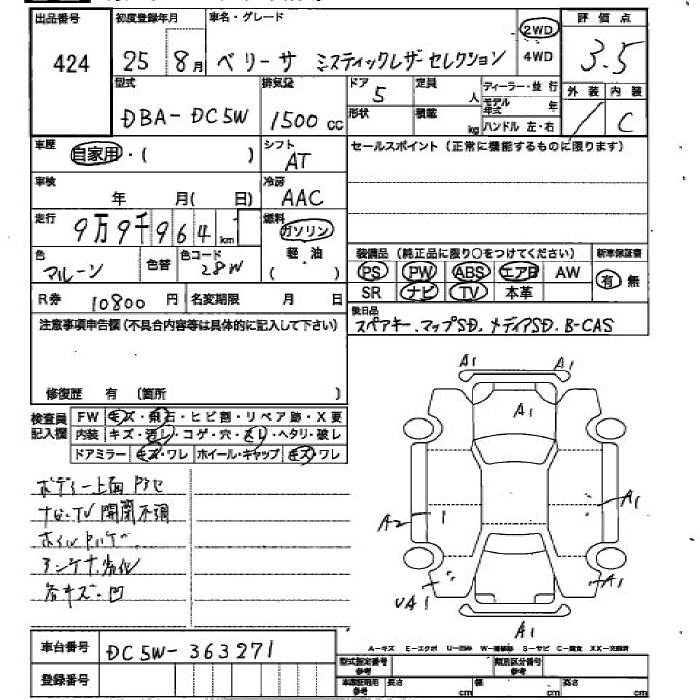 出品番号
424
初度登録年月
25 8月
車名・グレード
ベリーサ ミスティックレザーセレクション
2WD
4WD
評価点
3.5
外装 内装
/ C
型式
DBA-DC5W
排気量
1500 cc
ドア
5
定員
人
形状
積載
kg
ディーラー・並行
モデル年式 年
ハンドル 左・右
車歴
自家用・( )
シフト
AT
セールスポイント(正常に機能するものに限ります)
車検
年 月( 日)
冷房
AAC
走行
9万9千964km
燃料
ガソリン
軽・油
( )
色
マルーン
色替
色コード
28W
装備品(純正品に限り○をつけてください)
新車保証書
PS PW ABS エアB AW
SR ナビ TV 本革
有 無
R券 10800円
名変期限 月 日
後日品
スペアキー.マップSD.メディアSD.B-CAS
注意事項申告欄(不具合内容等は具体的に記入して下さい)
修復歴 有 〔箇所 〕
検査員記入欄
FW キズ・飛石・ヒビ割・リペア跡・X要
内装 キズ・汚し・コゲ・穴・スレ・ヘタリ・破レ
ドアミラー キズ・ワレ ホイール・キャップ キズ・ワレ
ボディー上面
ナビ・TV開閉不調
アンテナ劣化
各キズ・凹
A1
A1
A1
A1
A2
A1
UA1
A1
車台番号
DC5W-363271
登録番号
A-キズ E-エクボ U-凹み W-補修跡 S-サビ C-腐食 XX-交換済
型式指定番号 参考
類別区分番号 参考
車庫証明用 参考
長さ cm
幅 cm
高さ cm